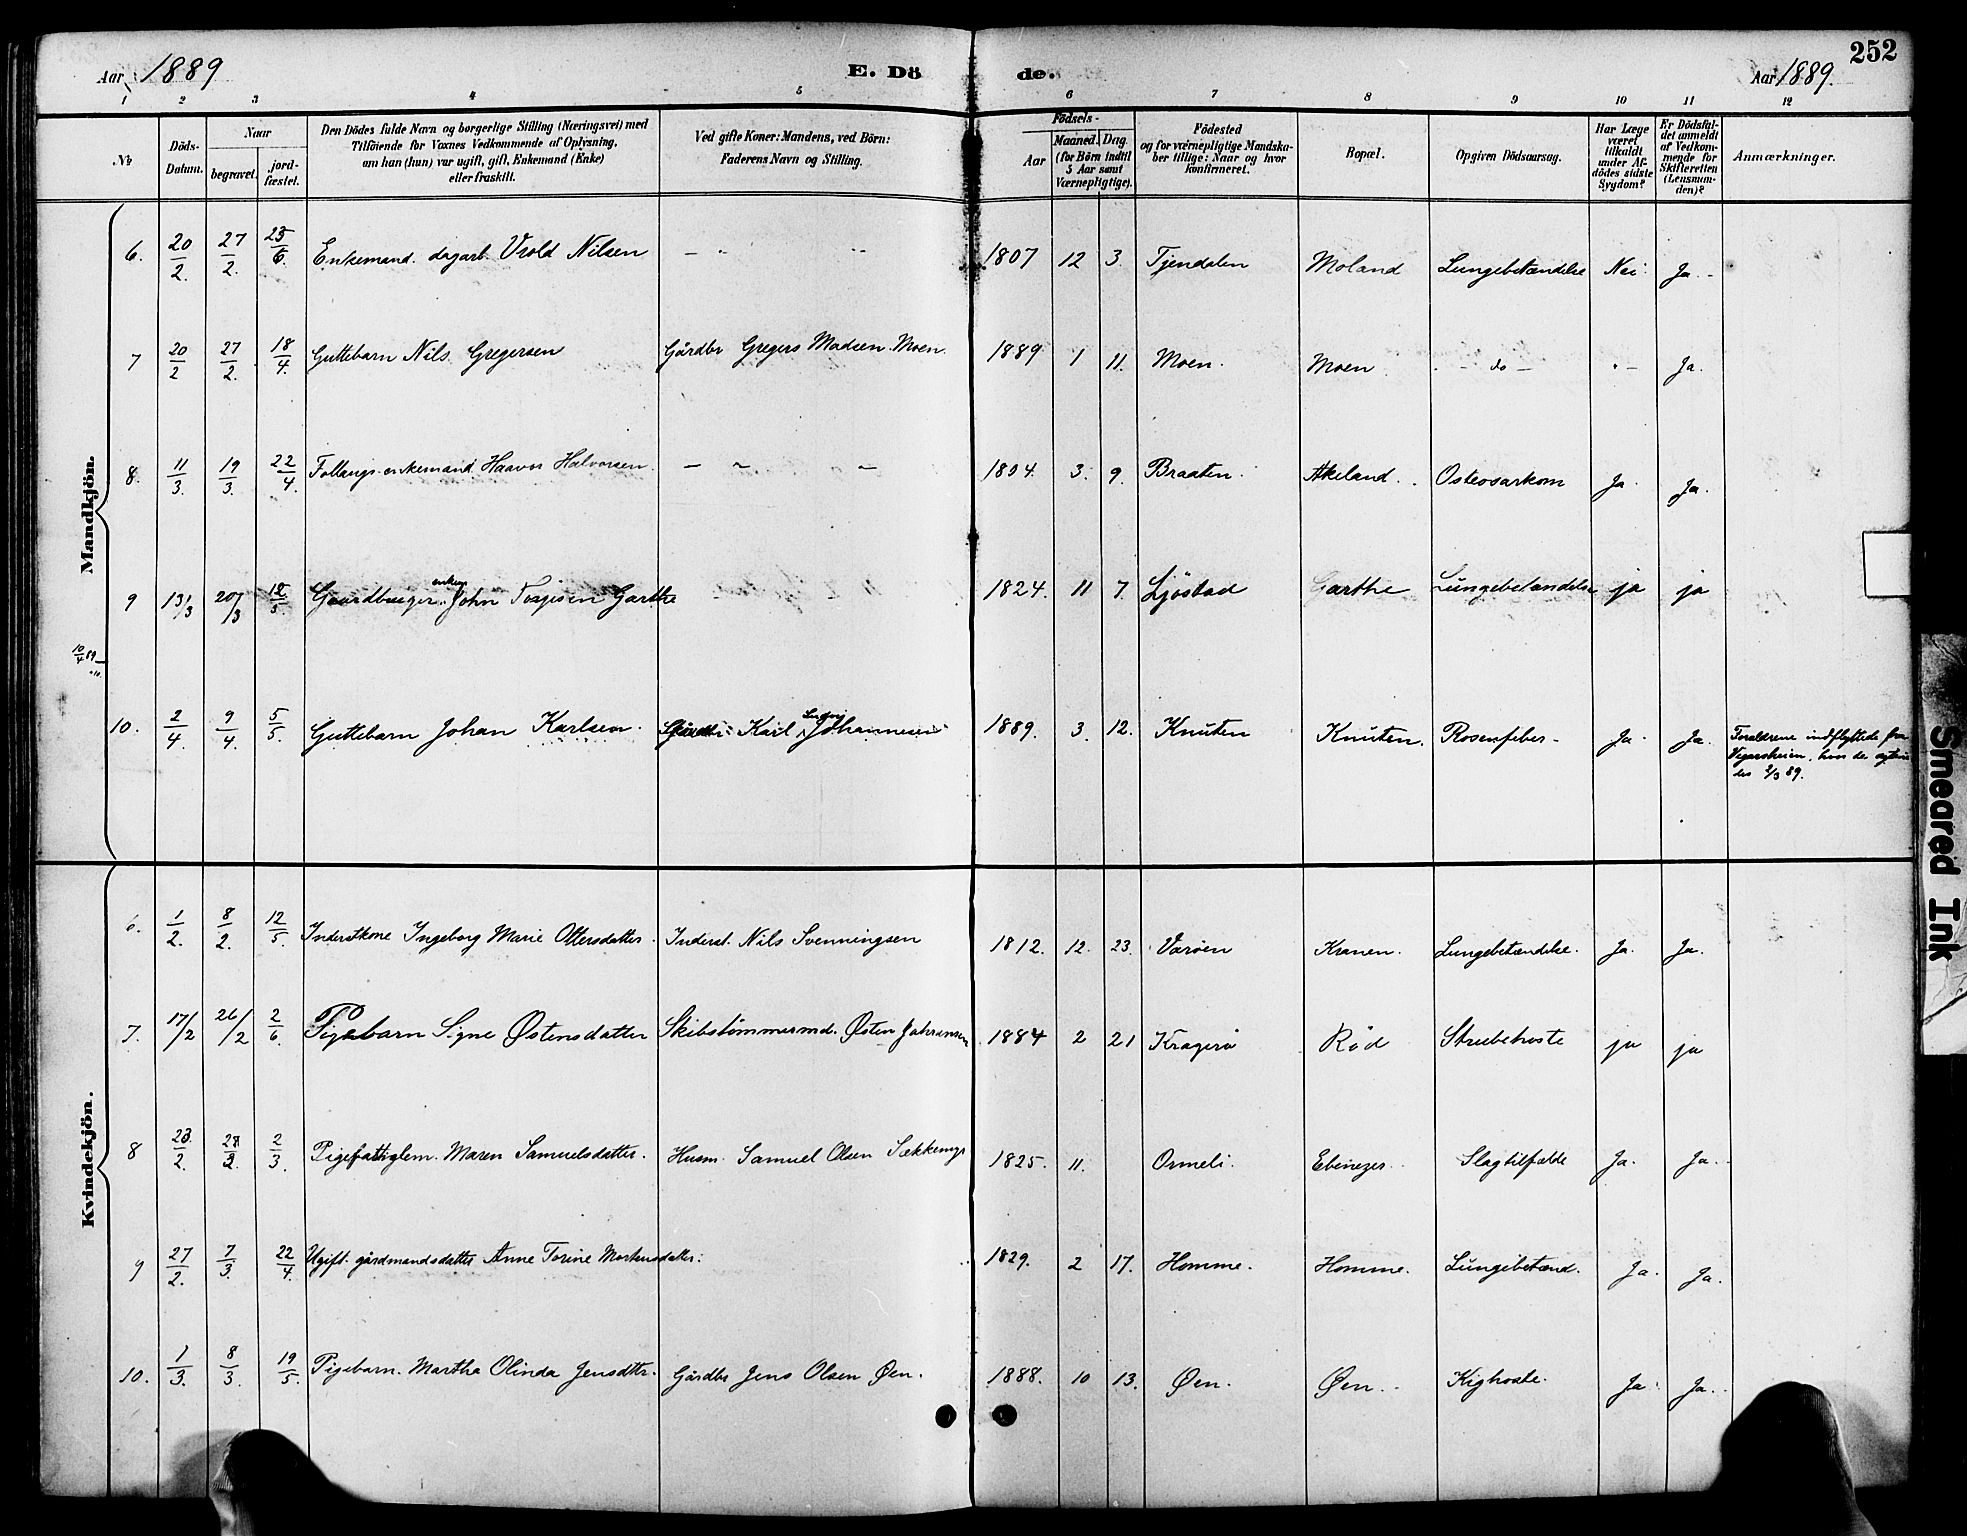 252
Aar 1889 E. Döde. Aar 1889.
1 2 3 4 5 6 7 8 9 10 11 12
№
Döds-Datum.
Naar
begravet. jordfæstet.
Den Dödes fulde Navn og borgerlige Stilling (Næringsvei) med
Tilföiende for Voxnes Vedkommende af Oplysning,
om han (hun) var ugift, gift, Enkemand (Enke)
eller fraskilt.
Ved gifte Koner: Mandens, ved Börn:
Faderens Navn og Stilling.
Födsels-
Aar Maaned. Dag.
(for Börn indtil
5 Aar samt
Værnepligtige).
Födested
og for værnepligtige Mandska-
ber tillige: Naar og hvor
konfirmeret.
Bopæl.
Opgiven Dödsaarsag.
Har Læge
været
tilkaldt
under Af-
dödes sidste
Sygdom?
Er Dödsfal-
det anmeldt
af Vedkom-
mende for
Skifteretten
(Lensman-
den)?
Anmærkninger.
Mandkjön.
6. 20/2. 27/2. 23/6. Enkemand. dagarb. Vrold Nilsen – " " 1807 12 3. Tjendalen Moland Lungebetændelse Nei Ja –
7 20/2 27/2. 18/4. Guttebarn Nils Gregersen Gårdbr Gregers Madsen Moen. 1889 1 11. Moen. Moen – do – " – Ja.
8. 11/3. 19/3. 22/4. enkemand Haavor Halvorsen. – " – 1804. 3. 9. Braaten. Akeland. Osteosarkom Ja. Ja.
9 13/3 20/3 12/5 Gaardbruger enkem John Terjesen Garthe 1824. 11 7. Ljöstad Garthe Lungebetændelse ja ja
10/4 89
10. 2/4. 9/4. 5/5. Guttebarn Johan Karlsen. Karl Ludvig Johannesen 1889. 3. 12. Knuten Knuten. Rosenfeber – Ja. Ja. Foræeldrene indflyttede fra
Vegarsheien, hvor de
2/3 89.
Kvindekjön.
6. 1/2. 8/2. 12/5. Inderstkone Ingeborg Marie Ottersdatter. Inderst. Nils Svenningsen 1812. 12. 23. Varöen Kranen. Lungebetændelse. Ja. Ja.
7. 17/2 26/2 2/6. Pigebarn Signe Østensdatter Skibstömmermd. Østen Johannsen 1884 2 21 Kragerö Röd Strubehoste ja ja
8 23/2. 28/2. 2/3. Pigefattiglem. Maren Samuelsdatter. Husm. Samuel Olsen Sækkemyr 1825. 11. Ormeli. Ebenezer. Slagtilfælde Ja. Ja.
9 27/2. 7/3. 22/4. Ugift gårdmandsdatter Anne Torine Mortensdatter. 1829. 2 17. Homme. Homme. Lungebetænd. Ja. Ja.
10. 1/3. 8/3. 19/5. Pigebarn. Martha Olinda Jensdtr. Gårdbr Jens Olsen Øen. 1888. 10 13. Øen. Øen. Kighoste. Ja. Ja.
Smeared Ink